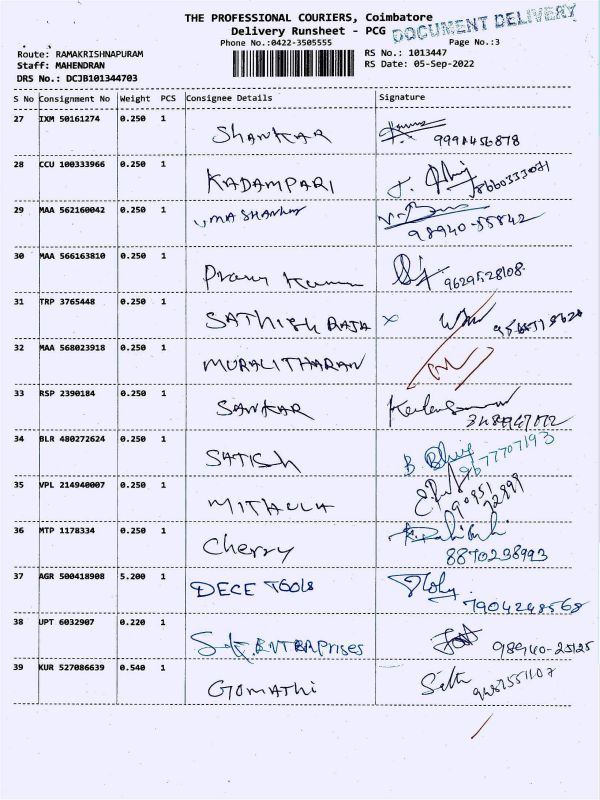 THE PROFESSIONAL COURIERS, Coimbatore
Delivery Runsheet - PCG
DOCUMENT DELIVERY
Phone No.:0422-3505555
Page No.:3
Route: RAMAKRISHNAPURAM
RS No.: 1013447
Staff: MAHENDRAN
RS Date: 05-Sep-2022
DRS No.: DCJB101344703
S No Consignment No Weight PCS Consignee Details Signature
27 IXM 50161274 0.250 1 Shankar
28 CCU 100333966 0.250 1 KADAMPARI
29 MAA 562160042 0.250 1 UMA SHANKAR 98940-55842
30 MAA 566163810 0.250 1 9629528108
31 TRP 3765448 0.250 1 SATHISH RAJA x
32 MAA 568023918 0.250 1 MURALITHARAN
33 RSP 2390184 0.250 1 SANKAR
34 BLR 480272624 0.250 1 SATISH 9677707193
35 VPL 214940007 0.250 1 MITHULA
36 MTP 1178334 0.250 1 Cherry 8870238993
37 AGR 500418908 5.200 1 DECE TOOLS 7904248568
38 UPT 6032907 0.220 1 ENTERPrises 98940-25125
39 KUR 527086639 0.540 1 GOMATHI